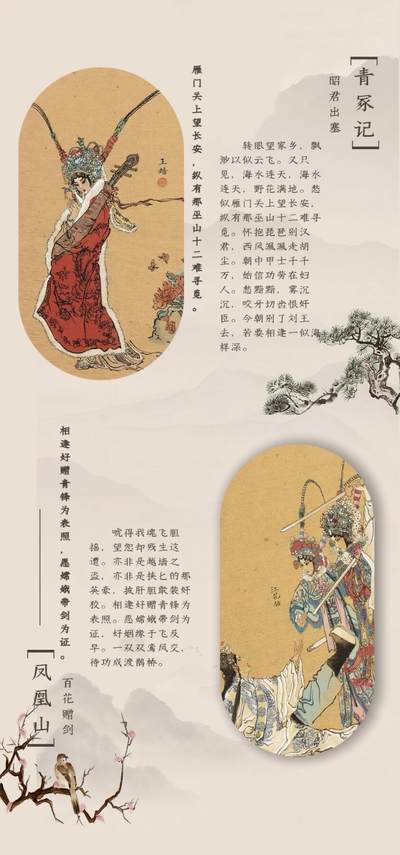 青冢记
昭君出塞
雁门关上望长安，纵有那巫山十二难寻觅。
王嫱
转眼望家乡，飘
渺以似云飞。又只
见，海水连天，海水
连天，野花满地。愁
似雁门关上望长安，
纵有那巫山十二难寻
觅。怀抱琵琶别汉
君，西风飒飒走胡
尘。朝中甲士千千
万，始信功劳在妇
人。愁黯黯，雾沉
沉，咬牙切齿恨奸
臣。今朝别了刘王
去，若要相逢一似海
样深。
相逢好赠青锋为表照，愿嫦娥带剑为证。
凤凰山
百花赠剑
唬得我魂飞胆
摇，望恕却残生这
遭。亦非是越墙之
盗，亦非是挟匕的那
英豪，披肝胆敢装奸
狡。相逢好赠青锋为
表照。愿嫦娥带剑为
证，好姻缘于飞及
早。一双双鸾凤交，
待功成渡鹊桥。